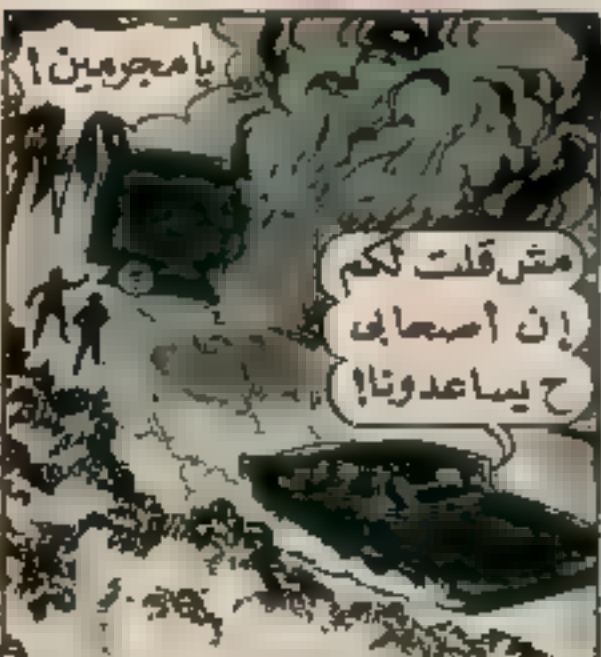 يا مجرمين !
مش قلت لكم
إن أصحابى
ح يساعدونا!